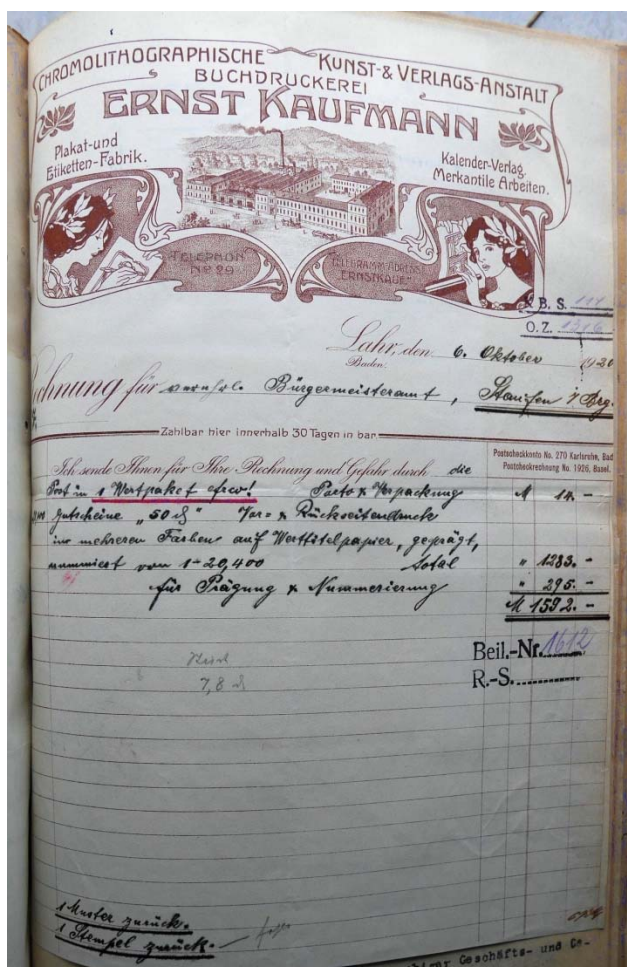 CHROMOLITHOGRAPHISCHE KUNST-& VERLAGS-ANSTALT
BUCHDRUCKEREI
ERNST KAUFMANN
Plakat-und
Etiketten-Fabrik.
Kalender-Verlag.
Merkantile Arbeiten.
TELEPHON
No 29
TELEGRAMM-ADRESSE
ERNSTKAUF
B. S. 111
O. Z.
Lahr, den 6. Oktober 1920
Baden.
Rechnung für verehrl. Bürgermeisteramt, Staufen
Zahlbar hier innerhalb 30 Tagen in bar.
Postscheckkonto No. 270 Karlsruhe, Bad
Postscheckrechnung No. 1926, Basel.
Ich sende Ihnen für Ihre Rechnung und Gefahr durch die
Post in 1 Wertpaket Porto & Verpackung M 14.-
Gutscheine „50 ₰" Vor- & Rückseitendruck
in mehreren Farben auf Werttitelpapier, geprägt,
nummeriert von 1-20,400 total " 1283.-
für Prägung & Nummerierung " 295.-
M 1592.-
Beil.-Nr. 1612
R.-S.
7,8 ₰
1 Muster zurück.
1 Stempel zurück.
Geschäfts- und Ge-